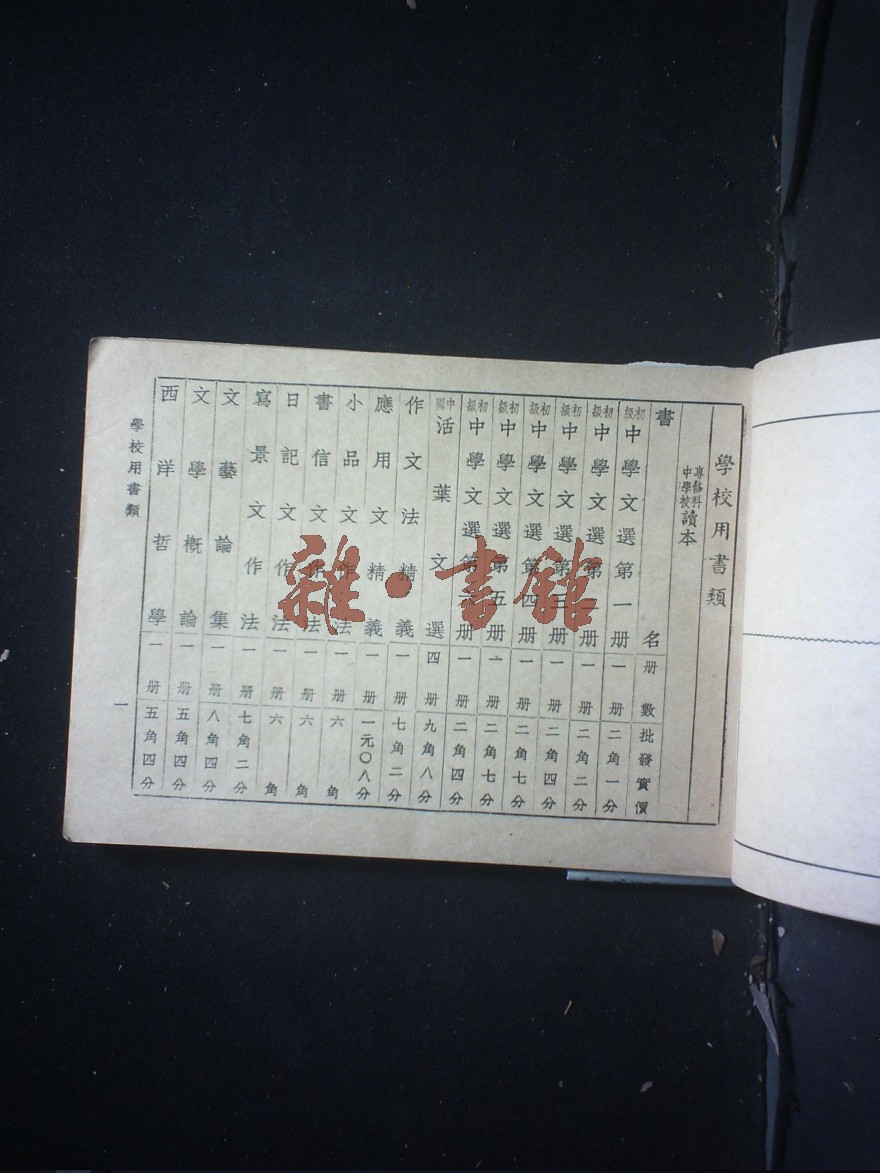 學校用書類
專修科中學校讀本
書名 册數 批發實價
初級中學文選第一册 一册 二角一分
初級中學文選第二册 一册 二角二分
初級中學文選第三册 一册 二角四分
初級中學文選第四册 一册 二角七分
初級中學文選第五册 一册 二角七分
初級中學文選第六册 一册 二角四分
中國活葉文選 四册 九角八分
作文法精義 一册 七角二分
應用文精義 一册 一元〇八分
小品文作法 一册 六角
書信文作法 一册 六角
日記文作法 一册 六角
寫景文作法 一册 七角二分
文藝論集 一册 八角四分
文學概論 一册 五角四分
西洋哲學 一册 五角四分
學校用書類
一
雜·書館